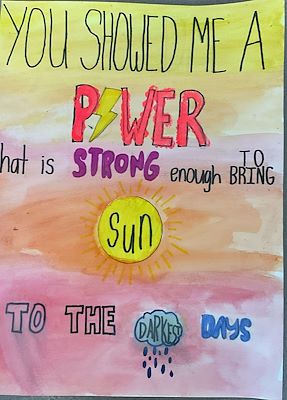 YOU SHOWED ME A
POWER
hat is STRONG enough TO BRING
sun
TO THE DARKEST DAYS